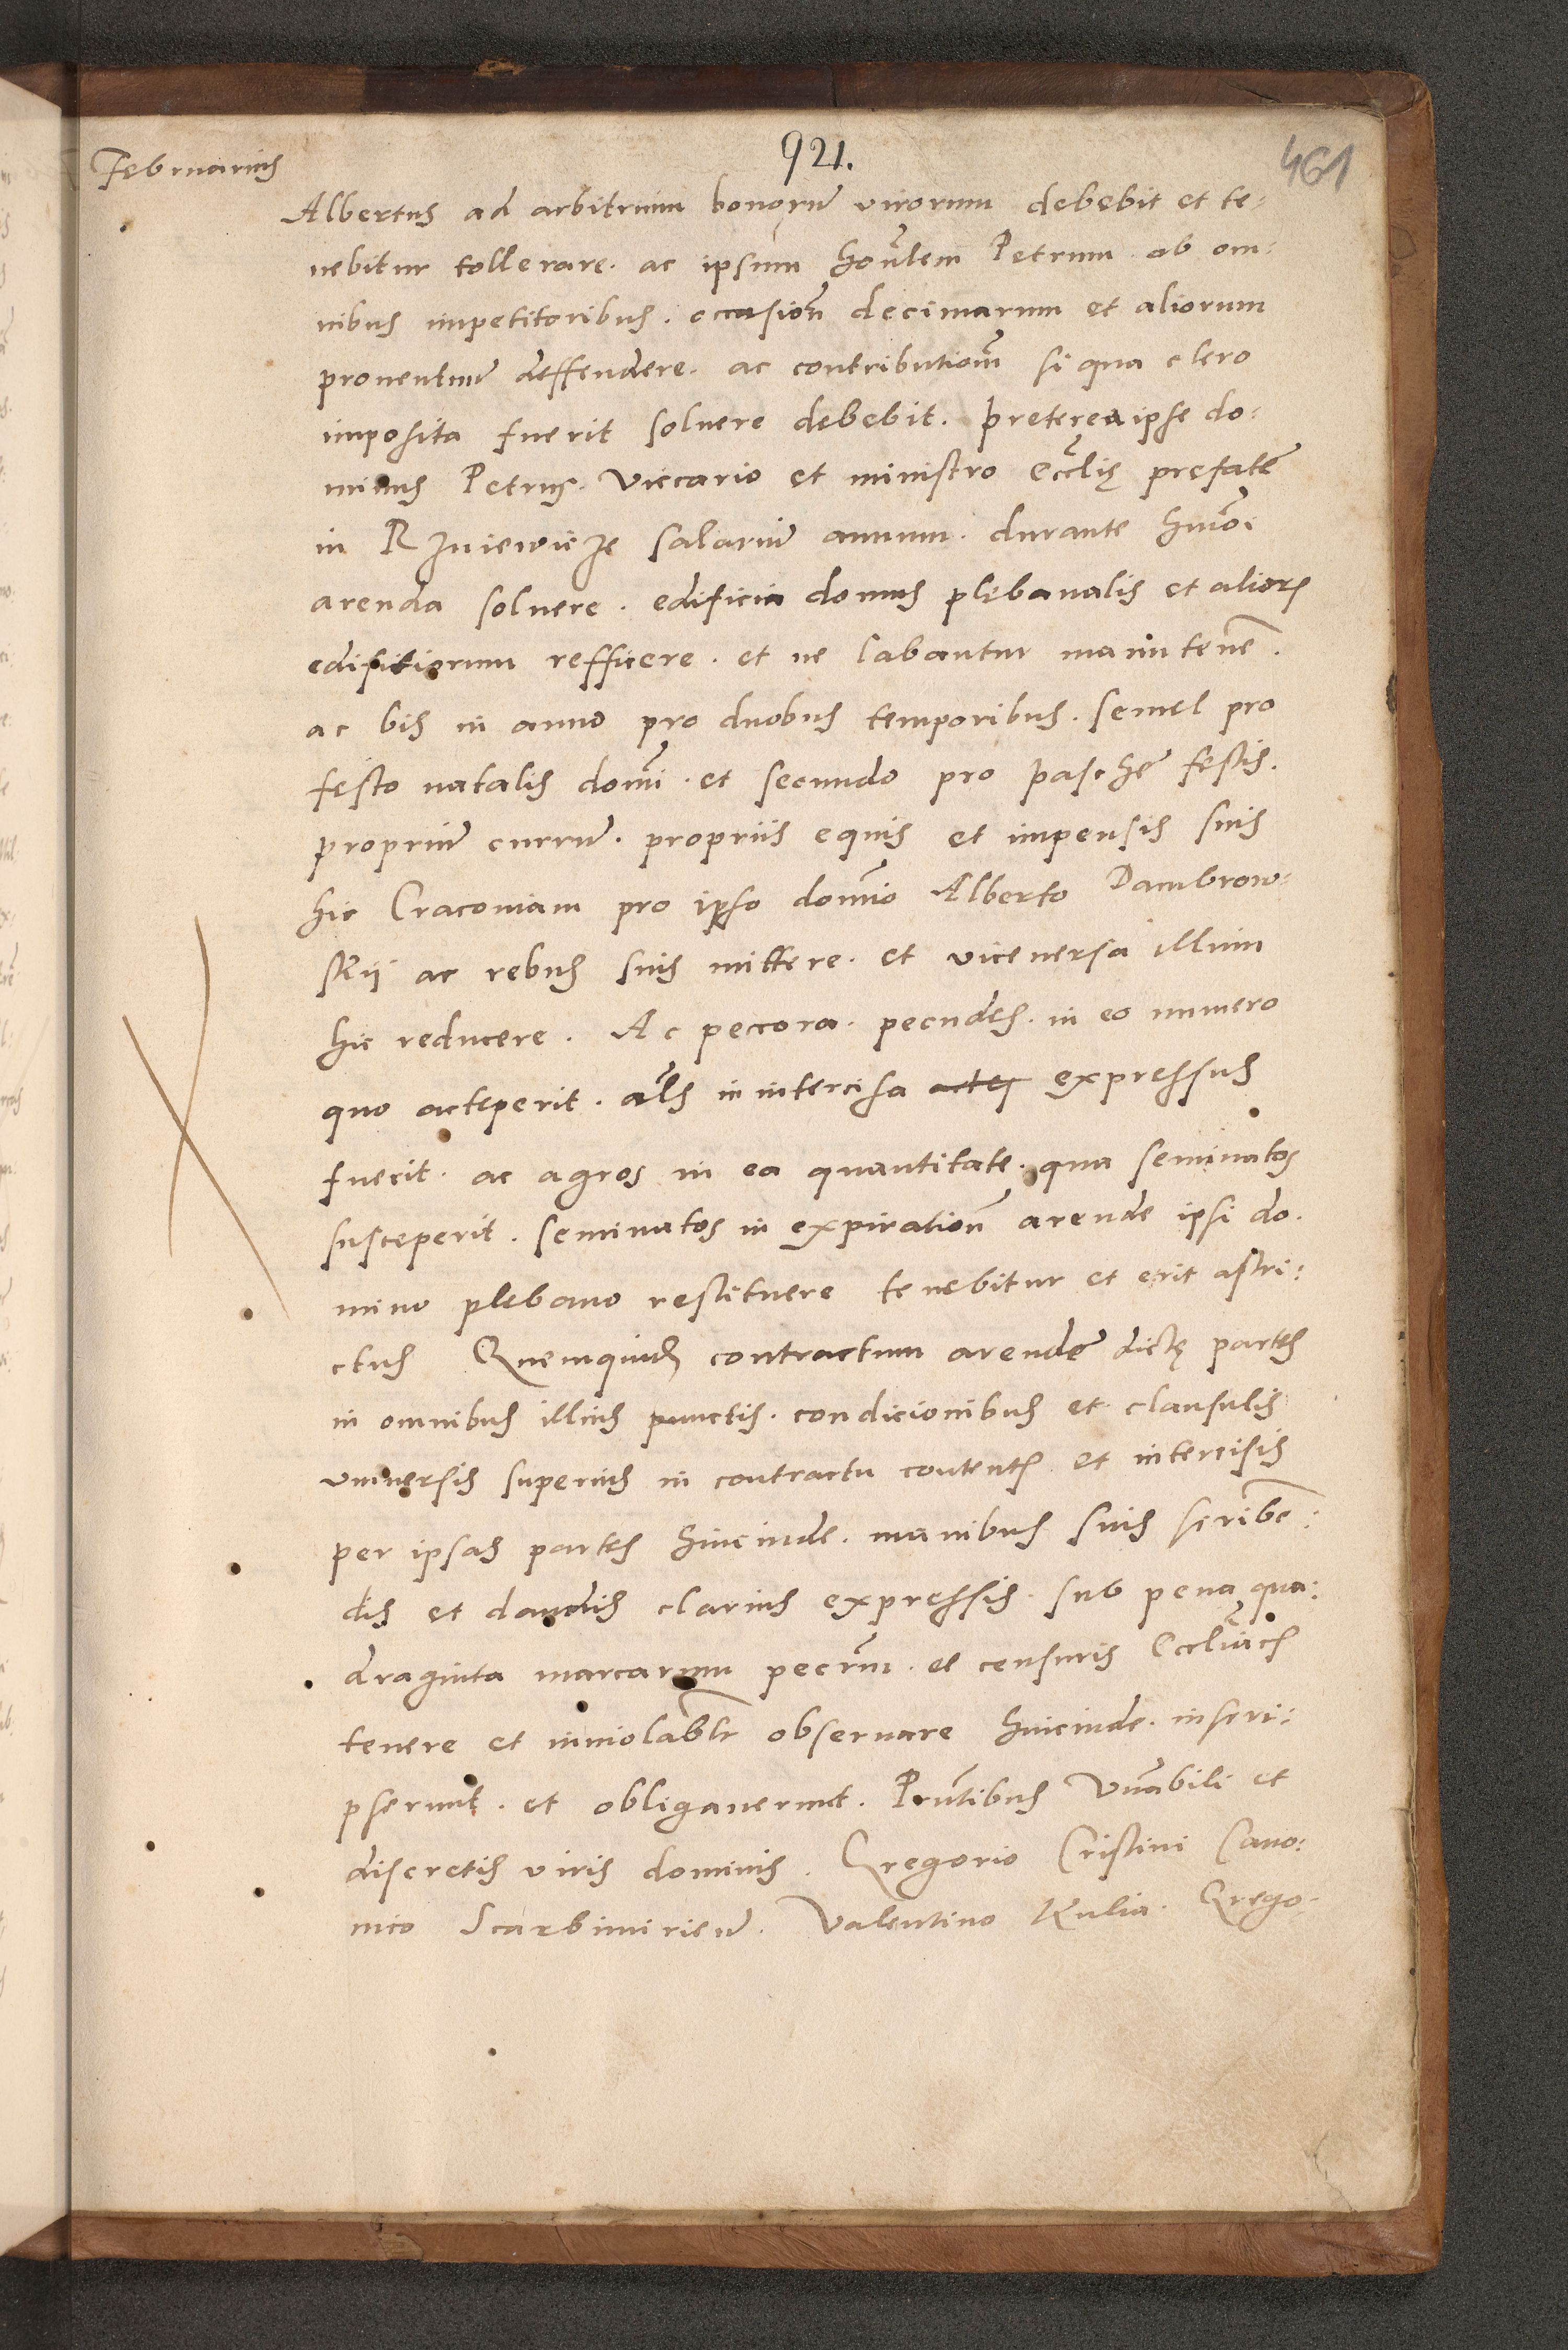 921.
461
Februarius
Albertus ad arbitrium bonorũ virorum debebit et te:
nebitur tollerare. ac ipsum hon̄lem Petrum ab om:
nibus impetitoribus. occasioñ decimarum et aliorum
proventuũ deffendere. ac contributioñm si qua clero
imposita fuerit soluere debebit. Preterea ipse do:
minus Petrus. Viccario et ministro eccl̄ię prefatẽ
in Rzniewicze salariũ annuum. durante hmōi
arenda soluere. edificia domus plebanalis et alior̄
edifitiorum refficere. et ne labantur manutenē.
ac bis in anno pro duobus temporibus. semel pro
festo natalis domi̅. et secundo pro paschẽ festis.
propriũ currũ. propriis equis et impensis suis
hic Cracouiam pro ipso domi̅o Alberto Dambrow:
skii ac rebus suis mittere. et viceuersa illum
hic reducere. Ac peccora. pecudes. in eo numero
quo acceperit. al̄s in intercisa expressus
fuerit. ac agros in ea quantitate. qua seminatos
susceperit. seminatos in expiratioñ arende ipsi do.
mino plebano restituere tenebitur et erit astri:
ctus Quemquidẽ contractum arendẽ dictę partes
in omnibus illius punctis. condicionibus et clausulis
vniuersis superius in contractu contentꝭ et intercisis
per ipsas partes hincinde. manibus suis scribē:
dis et dandis clarius expressis. sub pena qua:
draginta marcarum pec̄rm. et censuris Eccl̄iacꝭ
tenere et inuiolabl̄r obseruare hincinde. inscri:
pserunt. et obligauerunt. Prn̄tibus Vn̄abili et
discretis viris dominis. Gregorio Cristini Cano:
nico Scarbimirieñ. Valentino Kulia. Grego-